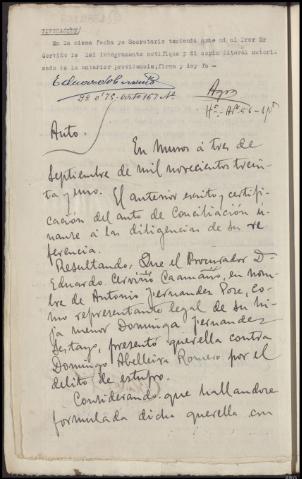 En la misma fecha yo Secretario teniendo a mi al Procr Sr
Cerviño le leí integramente notifique y di copia literal autori-
zada de la anterior providencia, firma y doy fe—
Auto.
En Muros á tres de
Septiembre de mil novecientos trein-
ta y uno. El anterior escrito y certifi-
cación del auto de Conciliación u-
nanse a las diligencias de su re
ferencia.
Resultando, Que el Procurador D.
Eduardo Cerviño Caamaño, en nom-
bre de Antonio Fernandez Pose, co-
mo representante legal de su hi-
ja menor Dominga Fernandez
Sestayo, presentó querella contra
Domingo Abelleira Romero por el
delito de estupro.
Considerando que hallandose
formulada dicha querella con